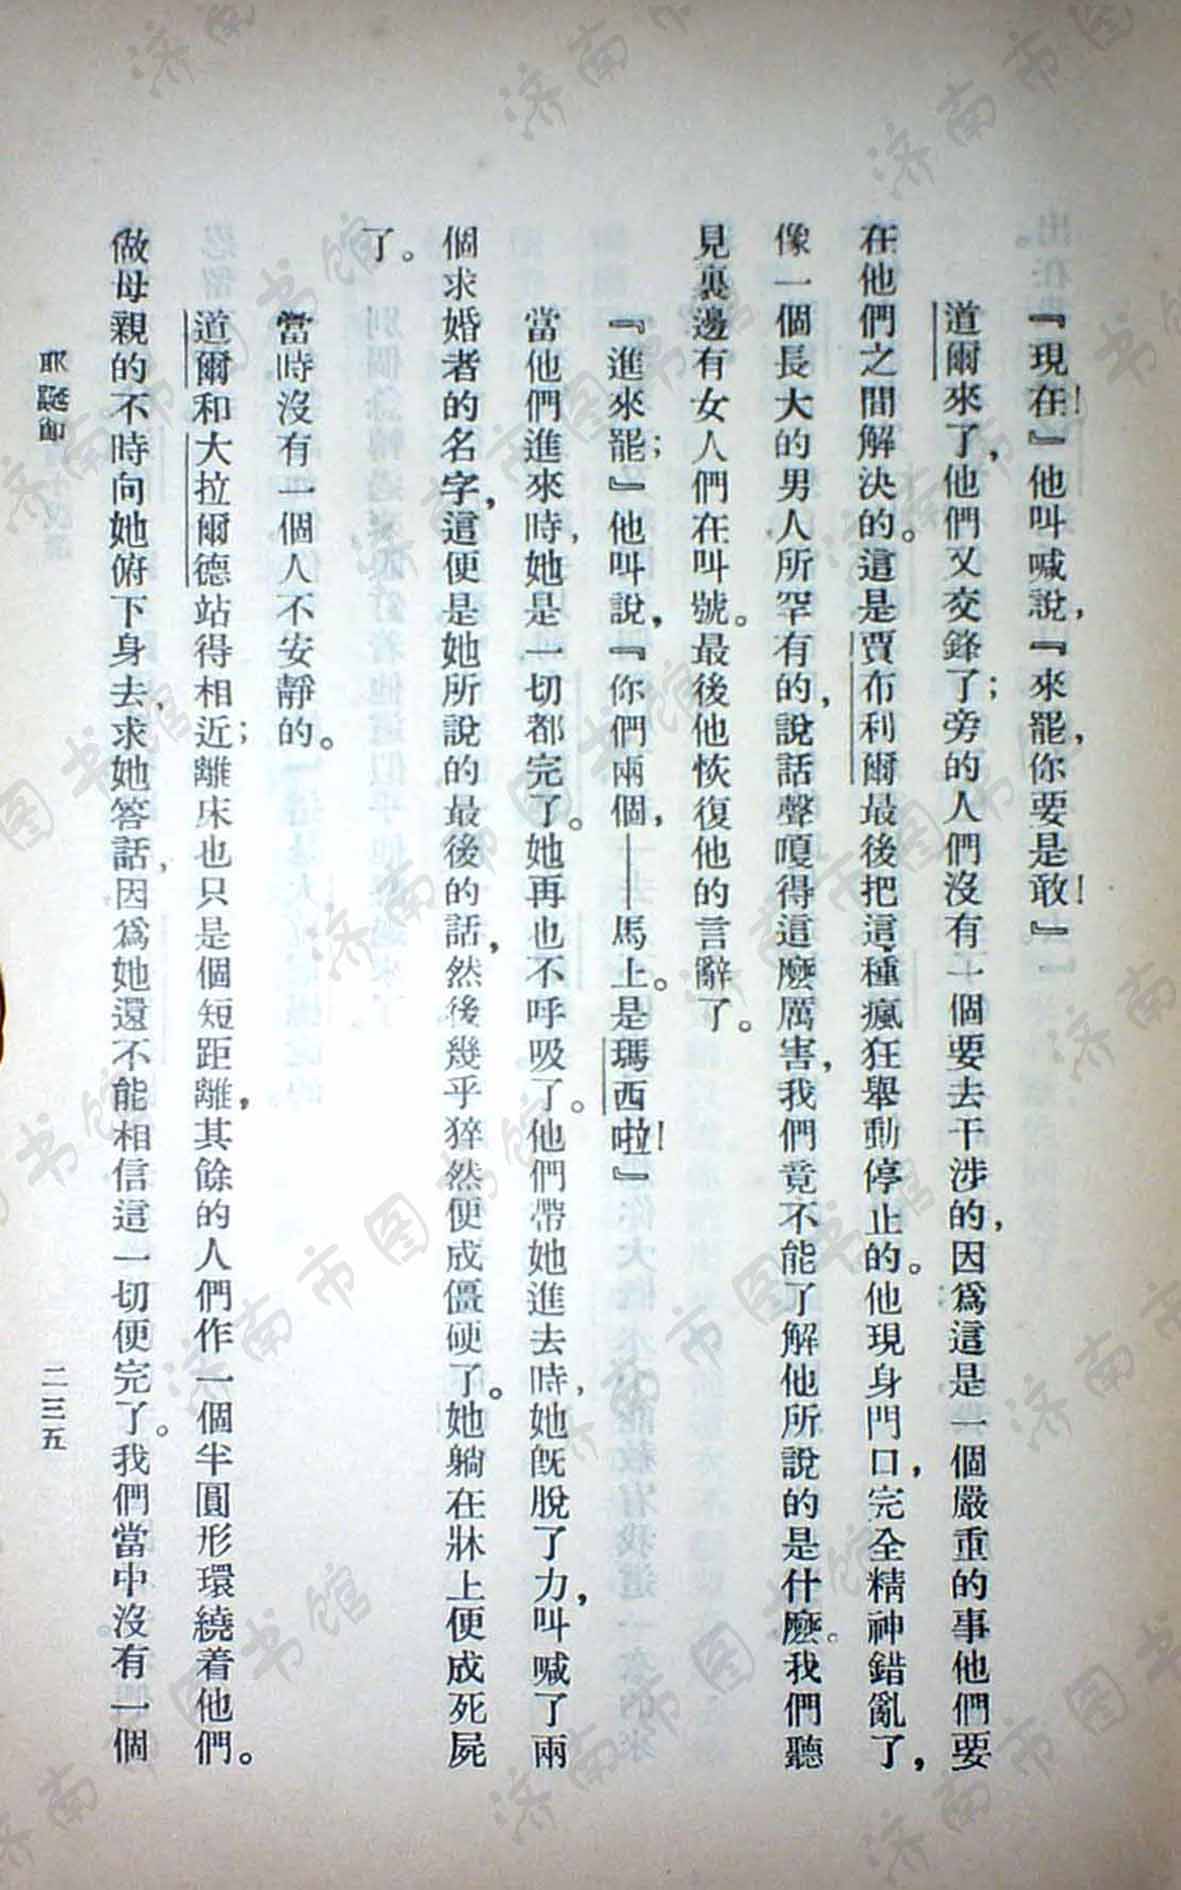 『現在！』他叫喊說，『來罷，你要是敢！』
道爾來了，他們又交鋒了；旁的人們沒有一個要去干涉的，因爲這是一個嚴重的事他們要
在他們之間解決的。這是賈布利爾最後把這種瘋狂舉動停止的。他現身門口，完全精神錯亂了，
像一個長大的男人所罕有的，說話聲嗄得這麼厲害，我們竟不能了解他所說的是什麼。我們聽
見裏邊有女人們在叫號。最後他恢復他的言辭了。
『進來罷；』他叫說，『你們兩個，——馬上。是瑪西啦！』
當他們進來時，她是一切都完了。她再也不呼吸了。他們帶她進去時，她旣脫了力，叫喊了兩
個求婚者的名字，這便是她所說的最後的話，然後幾乎猝然便成僵硬了。她躺在牀上便成死屍
了。
當時沒有一個人不安靜的。
道爾和大拉爾德站得相近；離床也只是個短距離，其餘的人們作一個半圓形環繞着他們。
做母親的不時向她俯下身去，求她答話，因爲她還不能相信這一切便完了。我們當中沒有一個
耶誕節
二三五
济南市图书馆